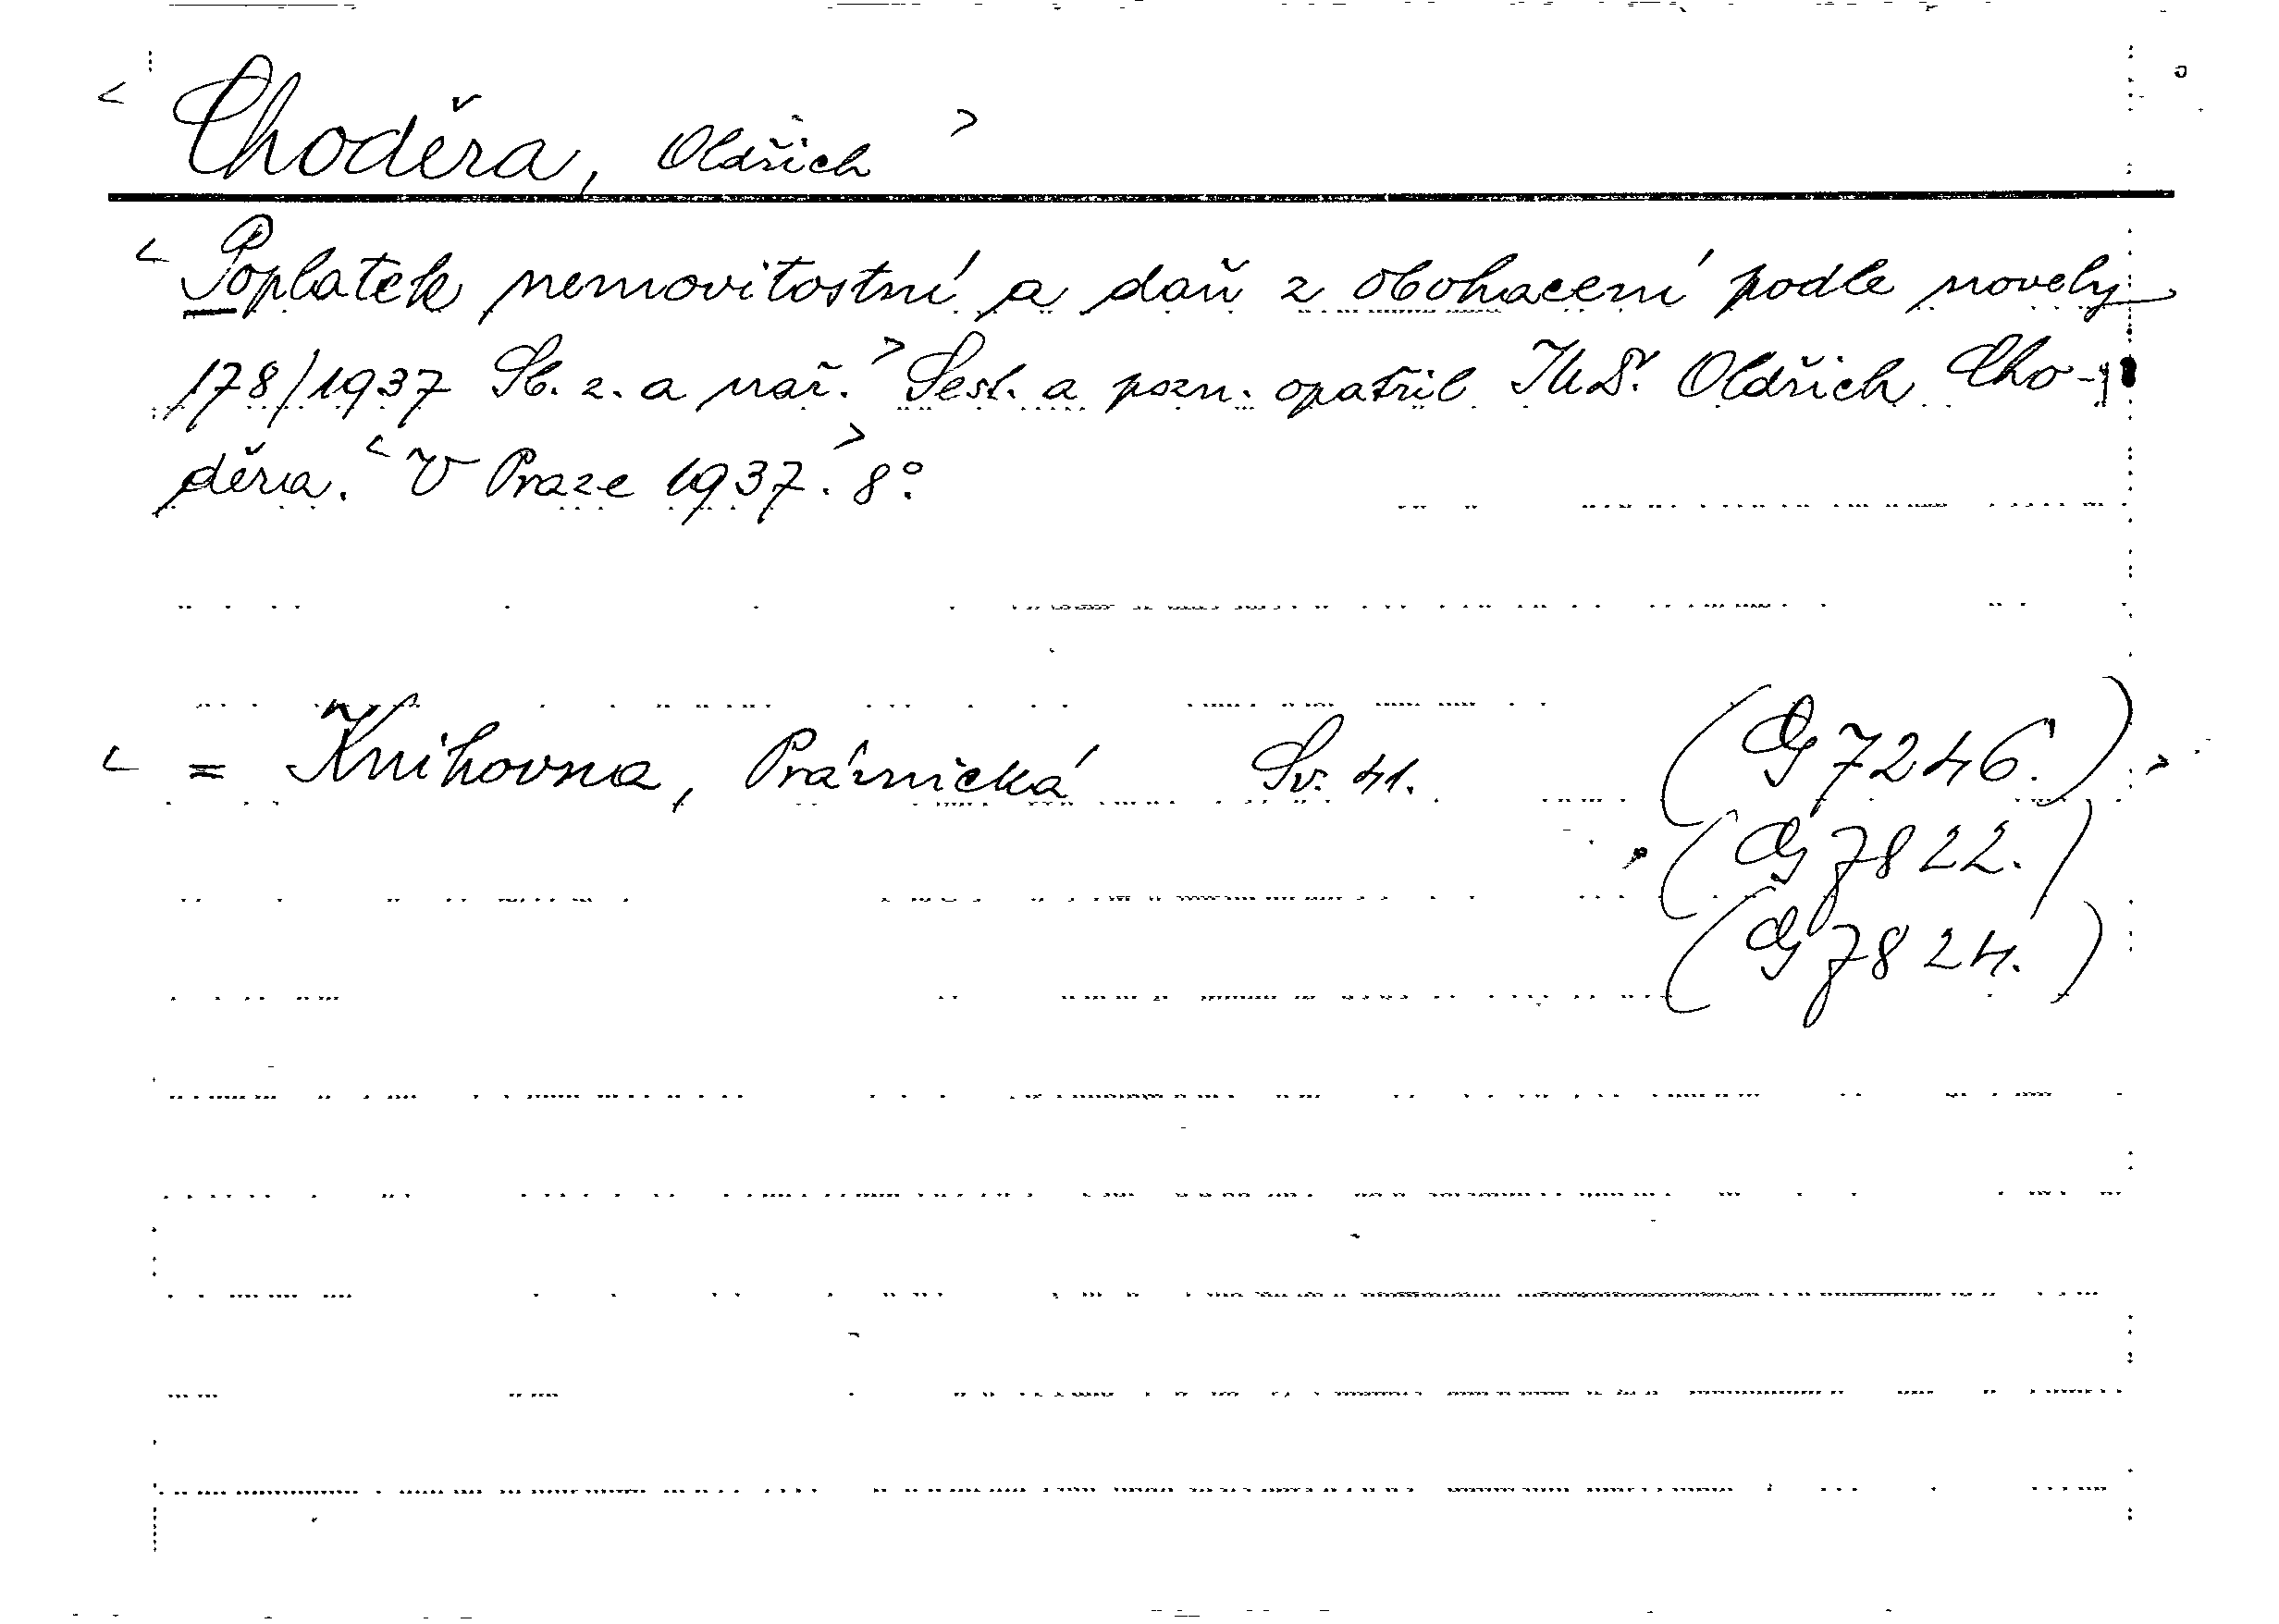 < Choděra, Oldřich >
< Poplatek nemovitostní a daň z obohacení podle novely
178/1937 Sb. z. a nař. > Sest. a pozn. opatřil JUDr. Oldřich Cho-
děra. < V Praze 1937. > 8°.
< = Knihovna, Právnická Sv. 41. (G 7246.) >
(G 7822.)
(G 7824.)